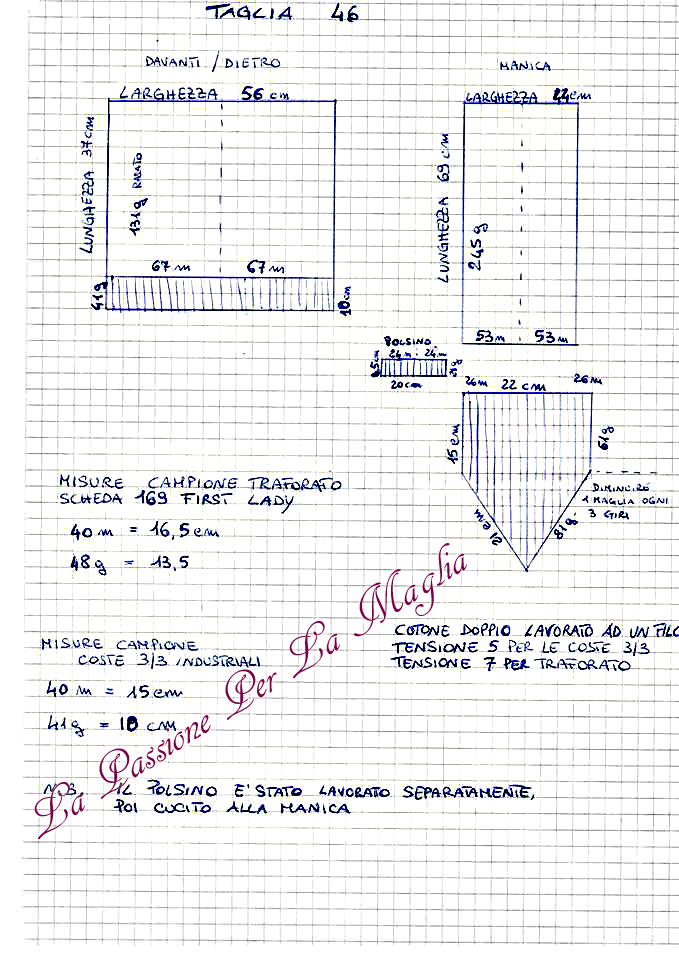 TAGLIA 46
DAVANTI / DIETRO
LARGHEZZA 56 cm
LUNGHEZZA 37 cm
131g RASATO
67 m 67 m
41g
10 cm
MANICA
LARGHEZZA 44 cm
LUNGHEZZA 69 cm
245 g
53m 53m
POLSINO
24 m 24 m
5 cm
21g
20 cm
26m 22 cm 26m
15 cm
61g
21 cm
81g.
DIMINUIRÒ
1 MAGLIA OGNI
3 GIRI
MISURE CAMPIONE TRAFORATO
SCHEDA 169 FIRST LADY
40 m = 16,5 cm
48 g = 13,5
MISURE CAMPIONE
COSTE 3/3 INDUSTRIALI
40 m = 15 cm
41 g = 10 cm
COTONE DOPPIO LAVORATO AD UN FILO
TENSIONE 5 PER LE COSTE 3/3
TENSIONE 7 PER TRAFORATO
N.B. IL POLSINO E' STATO LAVORATO SEPARATAMENTE,
POI CUCITO ALLA MANICA
La Passione Per La Maglia